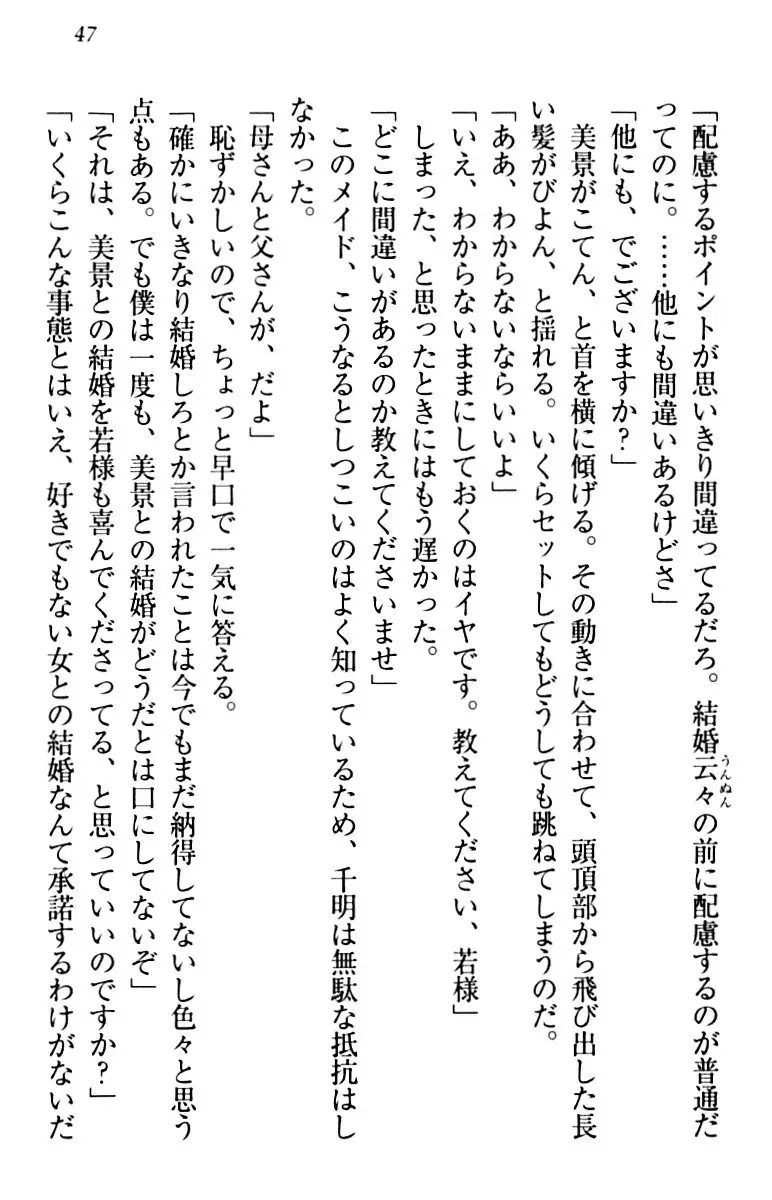 47
「配慮するポイントが思いきり間違ってるだろ。結婚云々の前に配慮するのが普通だ
ってのに。……他にも間違いあるけどさ」
「他にも、でございますか？」
美景がこてん、と首を横に傾げる。その動きに合わせて、頭頂部から飛び出した長
い髪がびよん、と揺れる。いくらセットしてもどうしても跳ねてしまうのだ。
「ああ、わからないならいいよ」
「いえ、わからないままにしておくのはイヤです。教えてください、若様」
しまった、と思ったときにはもう遅かった。
「どこに間違いがあるのか教えてくださいませ」
このメイド、こうなるとしつこいのはよく知っているため、千明は無駄な抵抗はし
なかった。
「母さんと父さんが、だよ」
恥ずかしいので、ちょっと早口で一気に答える。
「確かにいきなり結婚しろとか言われたことは今でもまだ納得してないし色々と思う
点もある。でも僕は一度も、美景との結婚がどうだとは口にしてないぞ」
「それは、美景との結婚を若様も喜んでくださってる、と思っていいのですか？」
「いくらこんな事態とはいえ、好きでもない女との結婚なんて承諾するわけがないだ
うんぬん